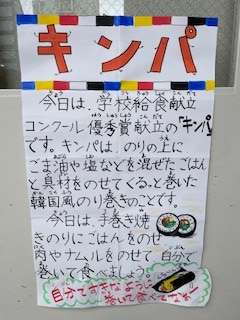 キンパ
今日は、学校給食献立
コンクール優秀賞献立の「キンパ」
です。キンパは、のりの上に
ごま油や塩などを混ぜたごはん
と具材をのせてくるっと巻いた
韓国風のり巻きのことです。
今日は、手巻き焼
きのりにごはんをのせ、
肉やナムルをのせて、自分で
巻いて食べましょう。
自分で上手なように
巻いて食べてなぁ